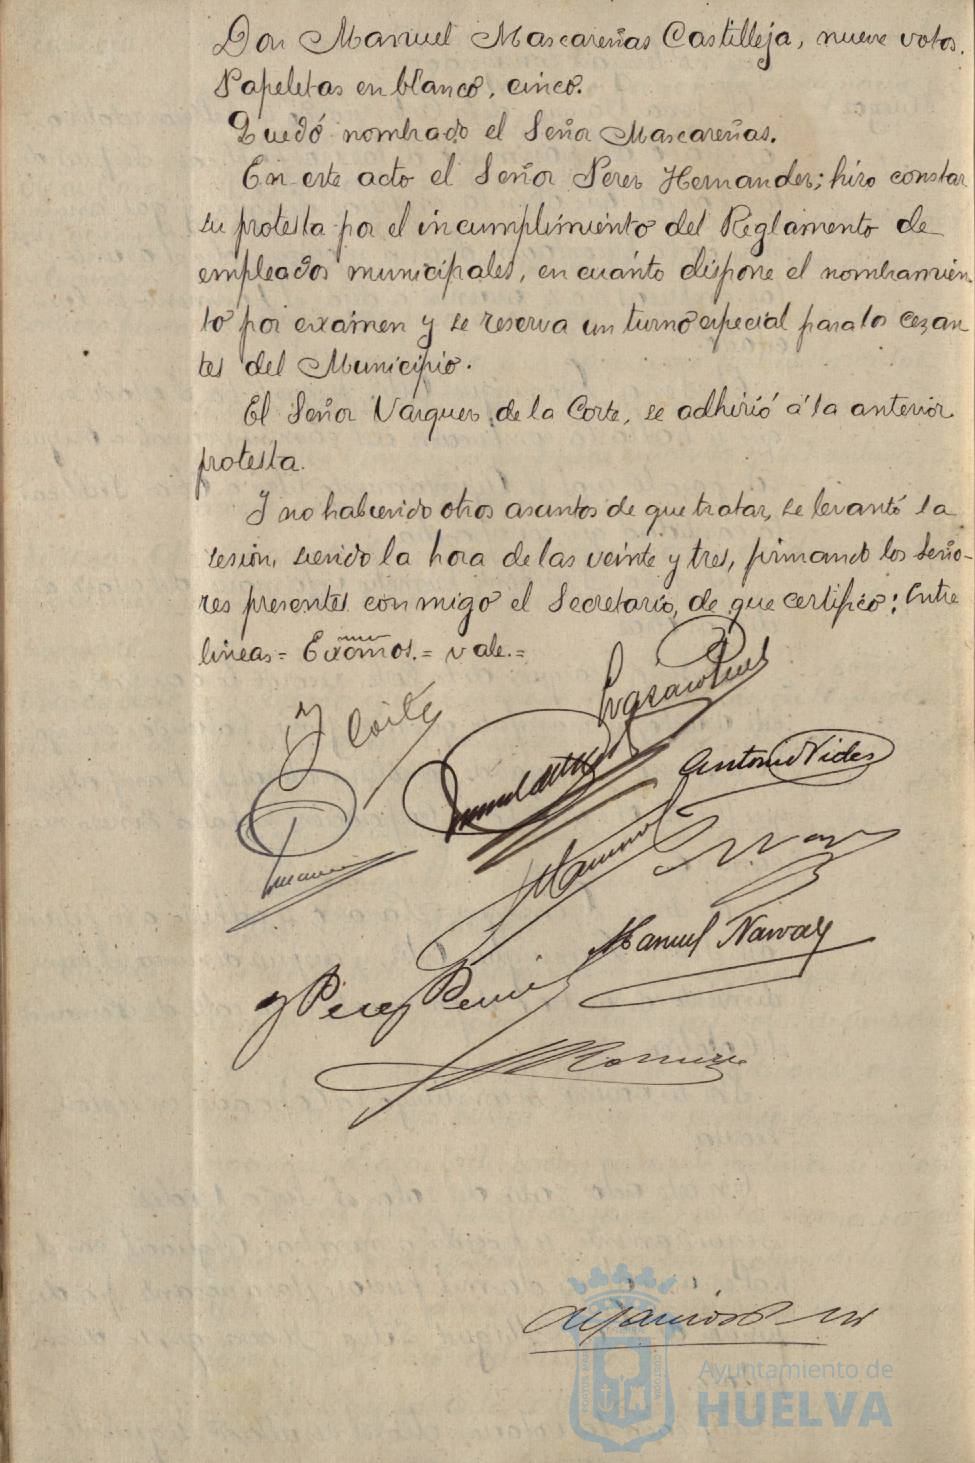 Don Manuel Mascareñas Castilleja, nueve votos.
Papeletas en blanco, cinco.
Quedó nombrado el Señor Mascareñas.
En este acto el Señor Peres Hernandes; hizo constar
su protesta por el incumplimiento del Reglamento de
empleados municipales, en cuánto dispone el nombramien
to por exámen y se reserva un turno especial para los cezan
tes del Municipio.
El Señor Vazques de la Corte, se adhirió á la anterior
protesta.
Y no habiendo otros asuntos de que tratar, se levantó la
sesion, siendo la hora de las veinte y tres, firmando los Seño-
res presentes conmigo el Secretario, de que certifico: Entre
lineas = = vale. =
Antonio Vides
Manuel Navarro
Perez
Ayuntamiento de
HUELVA